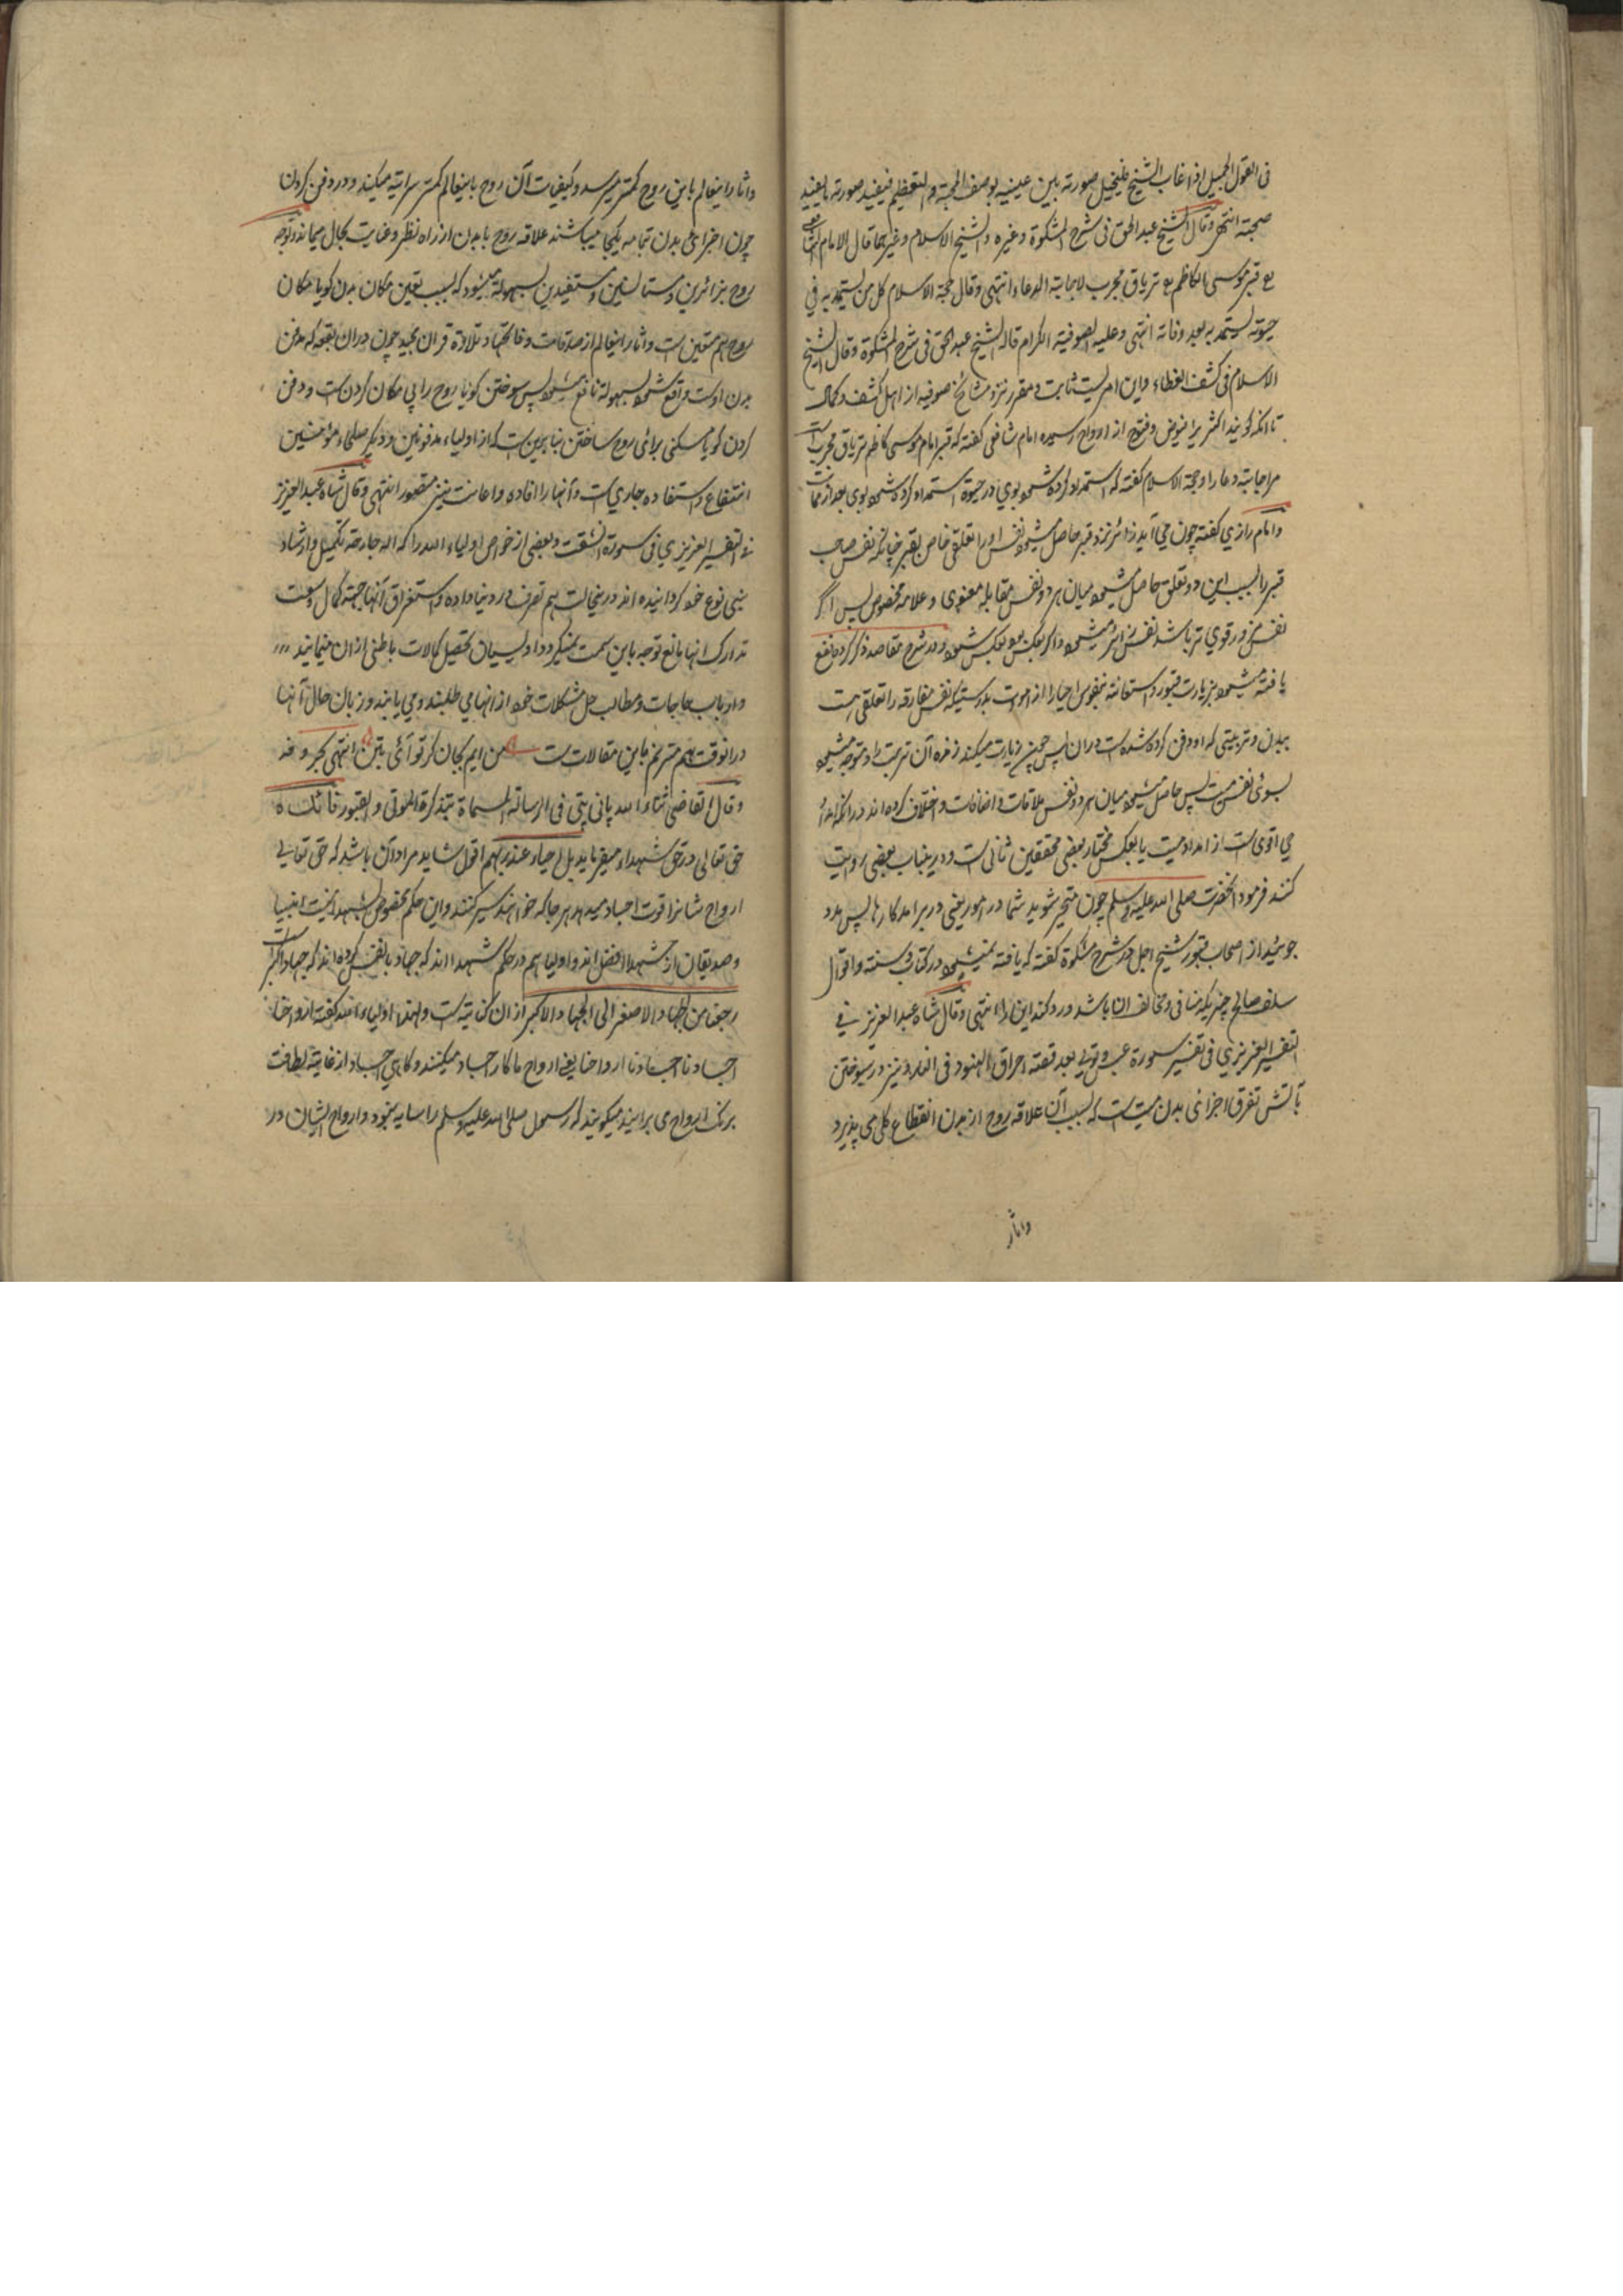 فی القول الجمیل اذا غاب الشیخ فلیخیل صورته بین عینیه بوصف المحبة و التعظیم فیفید صورته ما یفید
صحبته انتهی وقال الشیخ عبد الحق فی شرح المشکوة وغیره والشیخ الاسلام وغیرهما قال الامام الشافعی
رع قبر موسی الکاظم رع تریاق مجرب لاجابة الدعاء انتهی وقال حجة الاسلام کل من یستمد به فی
حیوته یستمد به بعد وفاته انتهی وعلیه الصوفیة الکرام قاله الشیخ عبد الحق فی شرح المشکوة وقال الشیخ
الاسلام فی کشف الغطاء واین امریست ثابت و مقرر نزد مشائخ صوفیه از اهل کشف و کمال
تا آنکه گویند اکثریرا فیوض و فتوح از ارواح رسیده امام شافعی گفته که قبر امام موسی کاظم تریاق مجرب است
مر اجابة دعا را و حجة الاسلام گفته که استمداد کرده شود بوی در حیوة استمداد کرده شود بوی بعد از ممات
و امام رازی گفته چون می آید زائر نزد قبر حاصل میشود نفس او را تعلقی خاص بقبر چنانکه نفس صاحب
قبر را بسبب این دو تعلق حاصل میشود میان هر دو نفس مقابله معنوی و علاقه مخصوص پس اگر
نفس مزور قوی تر باشد نفس زائر میشود و اگر بعکس بود بعکس شود و در شرح مقاصد ذکر کرده نافع
یافته میشود بزیارت قبور و استعانة بنفوس اخیار از اموات بدرستیکه نفس مفارقه را تعلقی هست
ببدن و تربیتی که او دفن کرده شده است دران پس چون زیارت میکند زنده آن تربت را و متوجه میشود
بسوی نفس میت پس حاصل میشود میان هر دو نفس ملاقات و اضافات و اختلاف کرده اند در آنکه امداد
حی اقوی است از امداد میت یا بعکس مختار بعضی محققین ثانی است و درینباب بعضی روایت
کنند فرمود آنحضرت صلی الله علیه وسلم چون متحیر شوید شما در امور یعنی در برامد کارها پس مدد
جوئید از اصحاب قبور شیخ اجل در شرح مشکوة گفته که یافته نمیشود در کتاب و سنته و اقوال
سلف صالح چیزیکه منافی و مخالف ان باشد و رد کند این را انتهی وقال شاه عبد العزیز فی
التفسیر العزیزی فی تفسیر سورة عبس و تولی بعد قصته احراق الهنود فی النار و نیز در سوختن
بآتش تفرق اجزائی بدن میت است که بسبب آن علاقه روح از بدن انقطاع کلی می پذیرد
واثار
واثار اینعالم باین روح کمتر میرسد و کیفیات آن روح باینعالم کمتر سرایته میکند و در دفن کردن
چون اجزای بدن بتمامه یکجا میباشند علاقه روح با بدن از راه نظر و عنایت بحال میماند و توجه
روح بزائرین و مستانسین و مستفیدین بسهولة میشود که بسبب تعین مکان بدن گویا مکان
روح هم متعین است و اثار اینعالم از صدقات و فاتحها و تلاوة قران مجید چون دران بقعه که مدفن
بدن اوست واقع شود بسهولة نافع میشود پس سوختن گویا روح را بی مکان کردن است و دفن
کردن گویا مسکنی برائی روح ساختن بنابرین است که از اولیاء مدفونین و دیگر صلحاء مؤمنین
انتفاع و استفاده جاری است و آنها را افاده و اعانت نیز متصور انتهی وقال شاه عبد العزیز
فی التفسیر العزیزی فی سورة انشقت و بعضی از خواص اولیاء الله را که اله جارحه تکمیل و ارشاد
بنی نوع خود گردانیده اند درینحالت هم تصرف در دنیا داده و استغراق آنها جهته کمال وسعت
تدارک انها مانع توجه باین سمت نمیگردد و اویسیان تحصیل کمالات باطنی از ان مینمایند
و ارباب حاجات و مطالب حل مشکلات خود از انها می طلبند و می یابند و زبان حال آنها
درانوقت هم مترنم باین مقالات است من ایم بجان گر تو آئی بتن انتهی بحروفه
وقال القاضی ثناء الله پانی پتی فی الرسالة المسماة بتذکرة الموتی و القبور فائده
حق تعالی در حق شهداء میفرماید بل احیاء عند ربهم اقول شاید مراد آن باشد که حق تعالی
ارواح شانرا قوت اجساد میدهد هر جا که خواهند سیر کنند و این حکم مخصوص بشهدا نیست انبیا
و صدیقان از شهدا افضل اند و اولیا هم در حکم شهدا اند که جهاد بالنفس کرده اند که جهاد اکبر است
رجعنا من الجهاد الاصغر الی الجهاد الاکبر از ان کنایتست و لهذا اولیاء الله گفته ارواحنا
اجسادنا اجسادنا ارواحنا یعنی ارواح ما کار اجساد میکنند و گاهی اجساد از غایته لطافت
برنگ ارواح می برایند میگویند که رسول صلی الله علیه وسلم را سایه نبود و ارواح ایشان در